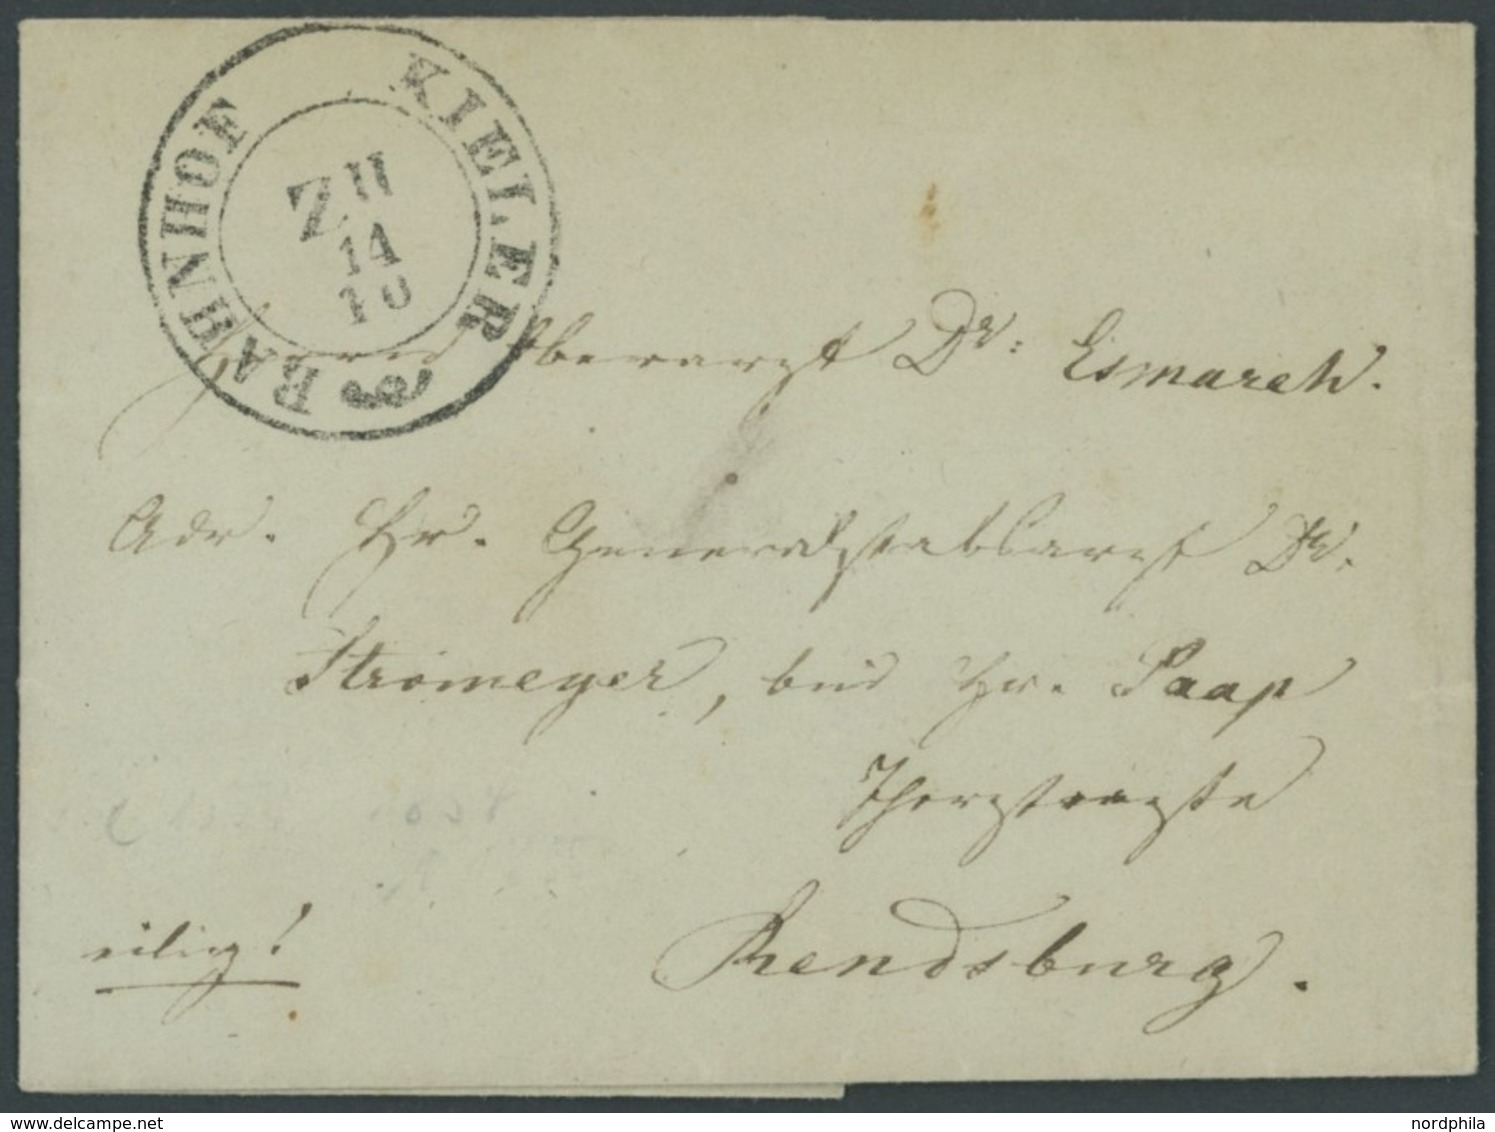 KIELER BAHNHOF
Z II
14
10
Herrn Oberarzt Dr: Esmarch.
Adr. Hr. Generalstabsarzt Dr.
Stromeyer, bei Hr. Paap
Rendsburg.
eilig!
nordphila